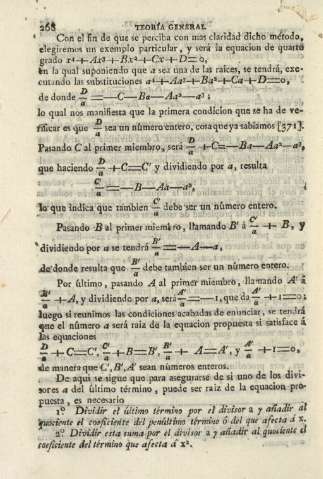 268 TEORÍA GENERAL
Con el fin de que se perciba con mas claridad dicho método,
elegiremos un exemplo particular, y será la equacion de quarto
grado x⁴+Ax³+Bx²+Cx+D=0,
en la qual suponiendo que a sea una de las raices, se tendrá, exe-
cutando las substituciones a⁴+Aa³+Ba²+Ca+D=0,
de donde D/a = —C—Ba—Aa²—a³;
lo qual nos manifiesta que la primera condicion que se ha de ve-
rificar es que D/a sea un número entero, cosa que ya sabíamos [371].
Pasando C al primer miembro, será D/a +C=—Ba—Aa²—a³,
que haciendo D/a +C=C' y dividiendo por a, resulta
C'/a =—B—Aa—a²,
lo que indica que tambien C'/a debe ser un número entero.
Pasando B al primer miembro, llamando B' á C'/a + B, y
dividiendo por a se tendrá B'/a =—A—a,
de donde resulta que B'/a debe tambien ser un número entero.
Por último, pasando A al primer miembro, llamando A' á
B'/a +A, y dividiendo por a, será A'/a =—1, que da A'/a +1=0;
luego si reunimos las condiciones acabadas de enunciar, se tendrá
que el número a será raiz de la equacion propuesta si satisface á
las equaciones
D/a +C=C', C'/a +B=B', B'/a + A=A', y A'/a +1=0,
de manera que C', B', A' sean números enteros.
De aqui se sigue que para asegurarse de si uno de los divi-
sores a del último término, puede ser raiz de la equacion pro-
puesta, es necesario
1º Dividir el último término por el divisor a y añadir al
quociente el coeficiente del penúltimo término ó del que afecta á x.
2º Dividir esta suma por el divisor a y añadir al quociente el
coeficiente del término que afecta á x².